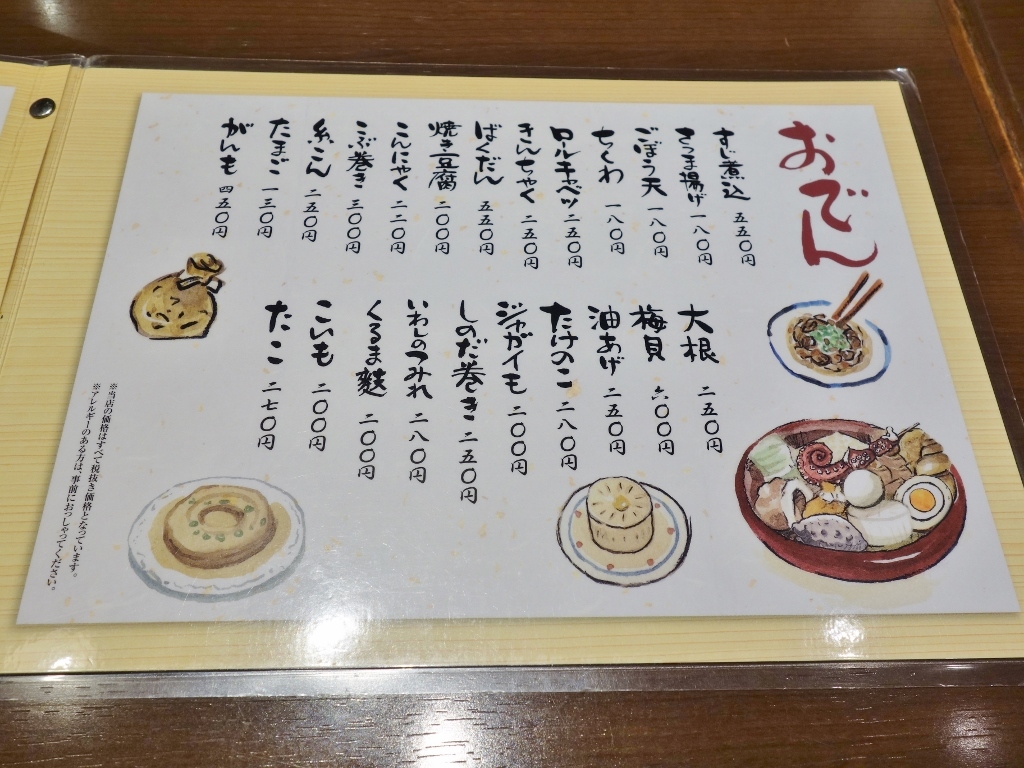 おでん
すじ煮込 五五〇円
さつま揚げ 一八〇円
ごぼう天 一八〇円
ちくわ 一八〇円
ロールキャベツ 二五〇円
きんちゃく 二五〇円
ばくだん 五五〇円
焼き豆腐 二〇〇円
こんにゃく 二二〇円
こぶ巻き 三〇〇円
糸こん 二五〇円
たまご 一三〇円
がんも 四五〇円
大根 二五〇円
梅貝 六〇〇円
油あげ 二五〇円
たけのこ 二八〇円
ジャガイモ 二〇〇円
しのだ巻き 二五〇円
いわしのつみれ 二八〇円
くるま麩 二〇〇円
こいも 二〇〇円
たこ 二七〇円
※当店の価格はすべて税抜き価格となっています。
※アレルギーのある方は、事前におっしゃってください。